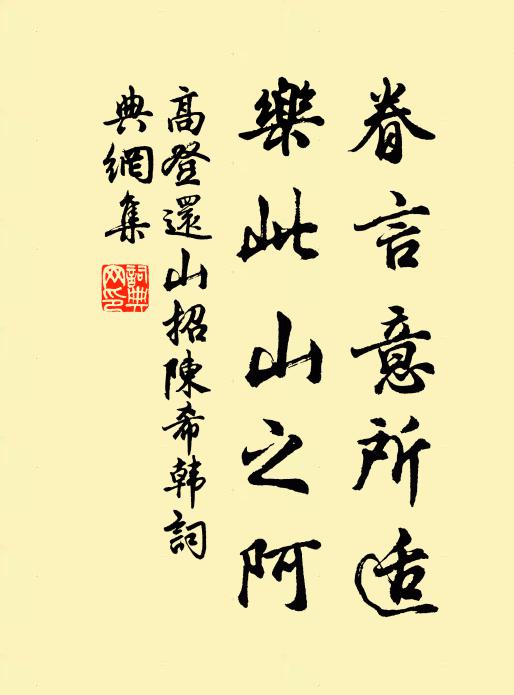 眷言意所适
樂此山之阿
高登還山招陳希韩詞
典網集
詞典
网印